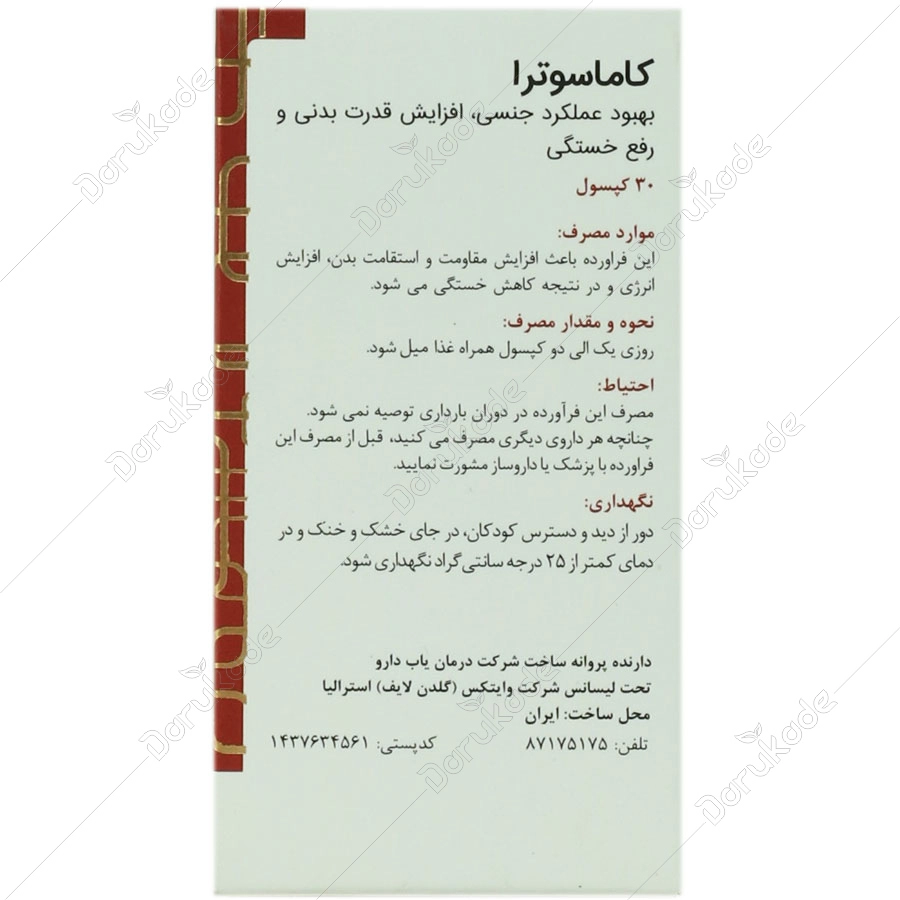 کاماسوترا
بهبود عملکرد جنسی، افزایش قدرت بدنی و
رفع خستگی
۳۰ کپسول
موارد مصرف:
این فراورده باعث افزایش مقاومت و استقامت بدن، افزایش
انرژی و در نتیجه کاهش خستگی می شود.
نحوه و مقدار مصرف:
روزی یک الی دو کپسول همراه غذا میل شود.
احتیاط:
مصرف این فرآورده در دوران بارداری توصیه نمی شود.
چنانچه هر داروی دیگری مصرف می کنید، قبل از مصرف این
فراورده با پزشک یا داروساز مشورت نمایید.
نگهداری:
دور از دید و دسترس کودکان، در جای خشک و خنک و در
دمای کمتر از ۲۵ درجه سانتی گراد نگهداری شود.
دارنده پروانه ساخت شرکت درمان یاب دارو
تحت لیسانس شرکت وایتکس (گلدن لایف) استرالیا
محل ساخت: ایران
تلفن: ۸۷۱۷۵۱۷۵ کدپستی: ۱۴۳۷۶۳۴۵۶۱
Darukade
Darukade
Darukade
Darukade
Darukade
Darukade
Darukade
Darukade
Darukade